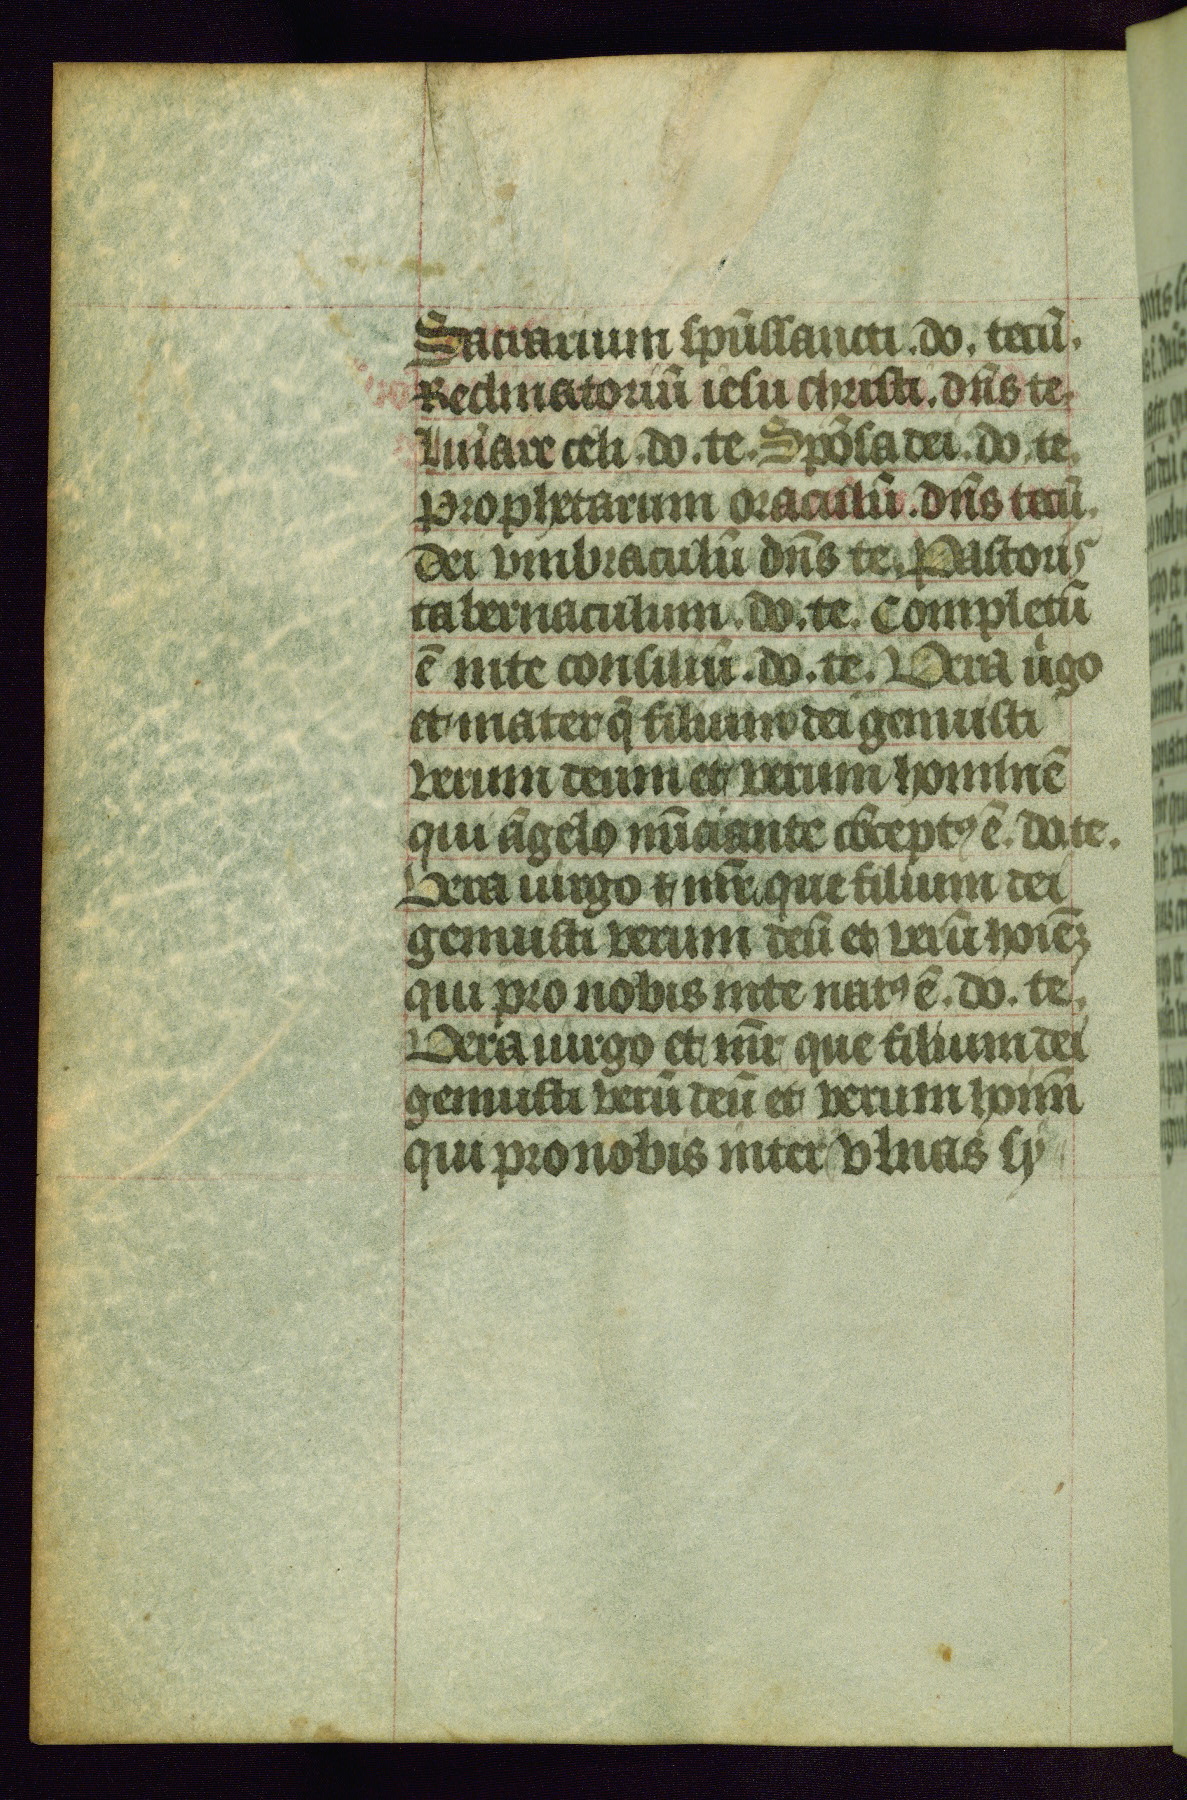 Sacrarium spūssancti . do . tecū .
Reclinatoriū iesu christi . dn̄s te .
Lūiare celi . do . te . Spōsa dei . do . te .
Prophetarum oraculū . dn̄s tecū .
Dei vmbraculū dn̄s te . Pastoris
tabernaculum . do . te . Completū
ē inte consiliū . do . te . Vera u̇go
et mater q̄ filium dei genuisti
verum deum et verum hominē
qui āgelo nūciante cōceptꝯ ē . do . te .
Vera uirgo ⁊ mr̄ que filium dei
genuisti verum deū et verū hoīēꝫ
qui pro nobis inte natꝯ ē . do . te .
Vera uirgo et mr̄ que filium dei
genuisti verū deū et verum homī
qui pro nobis inter vlnas sy